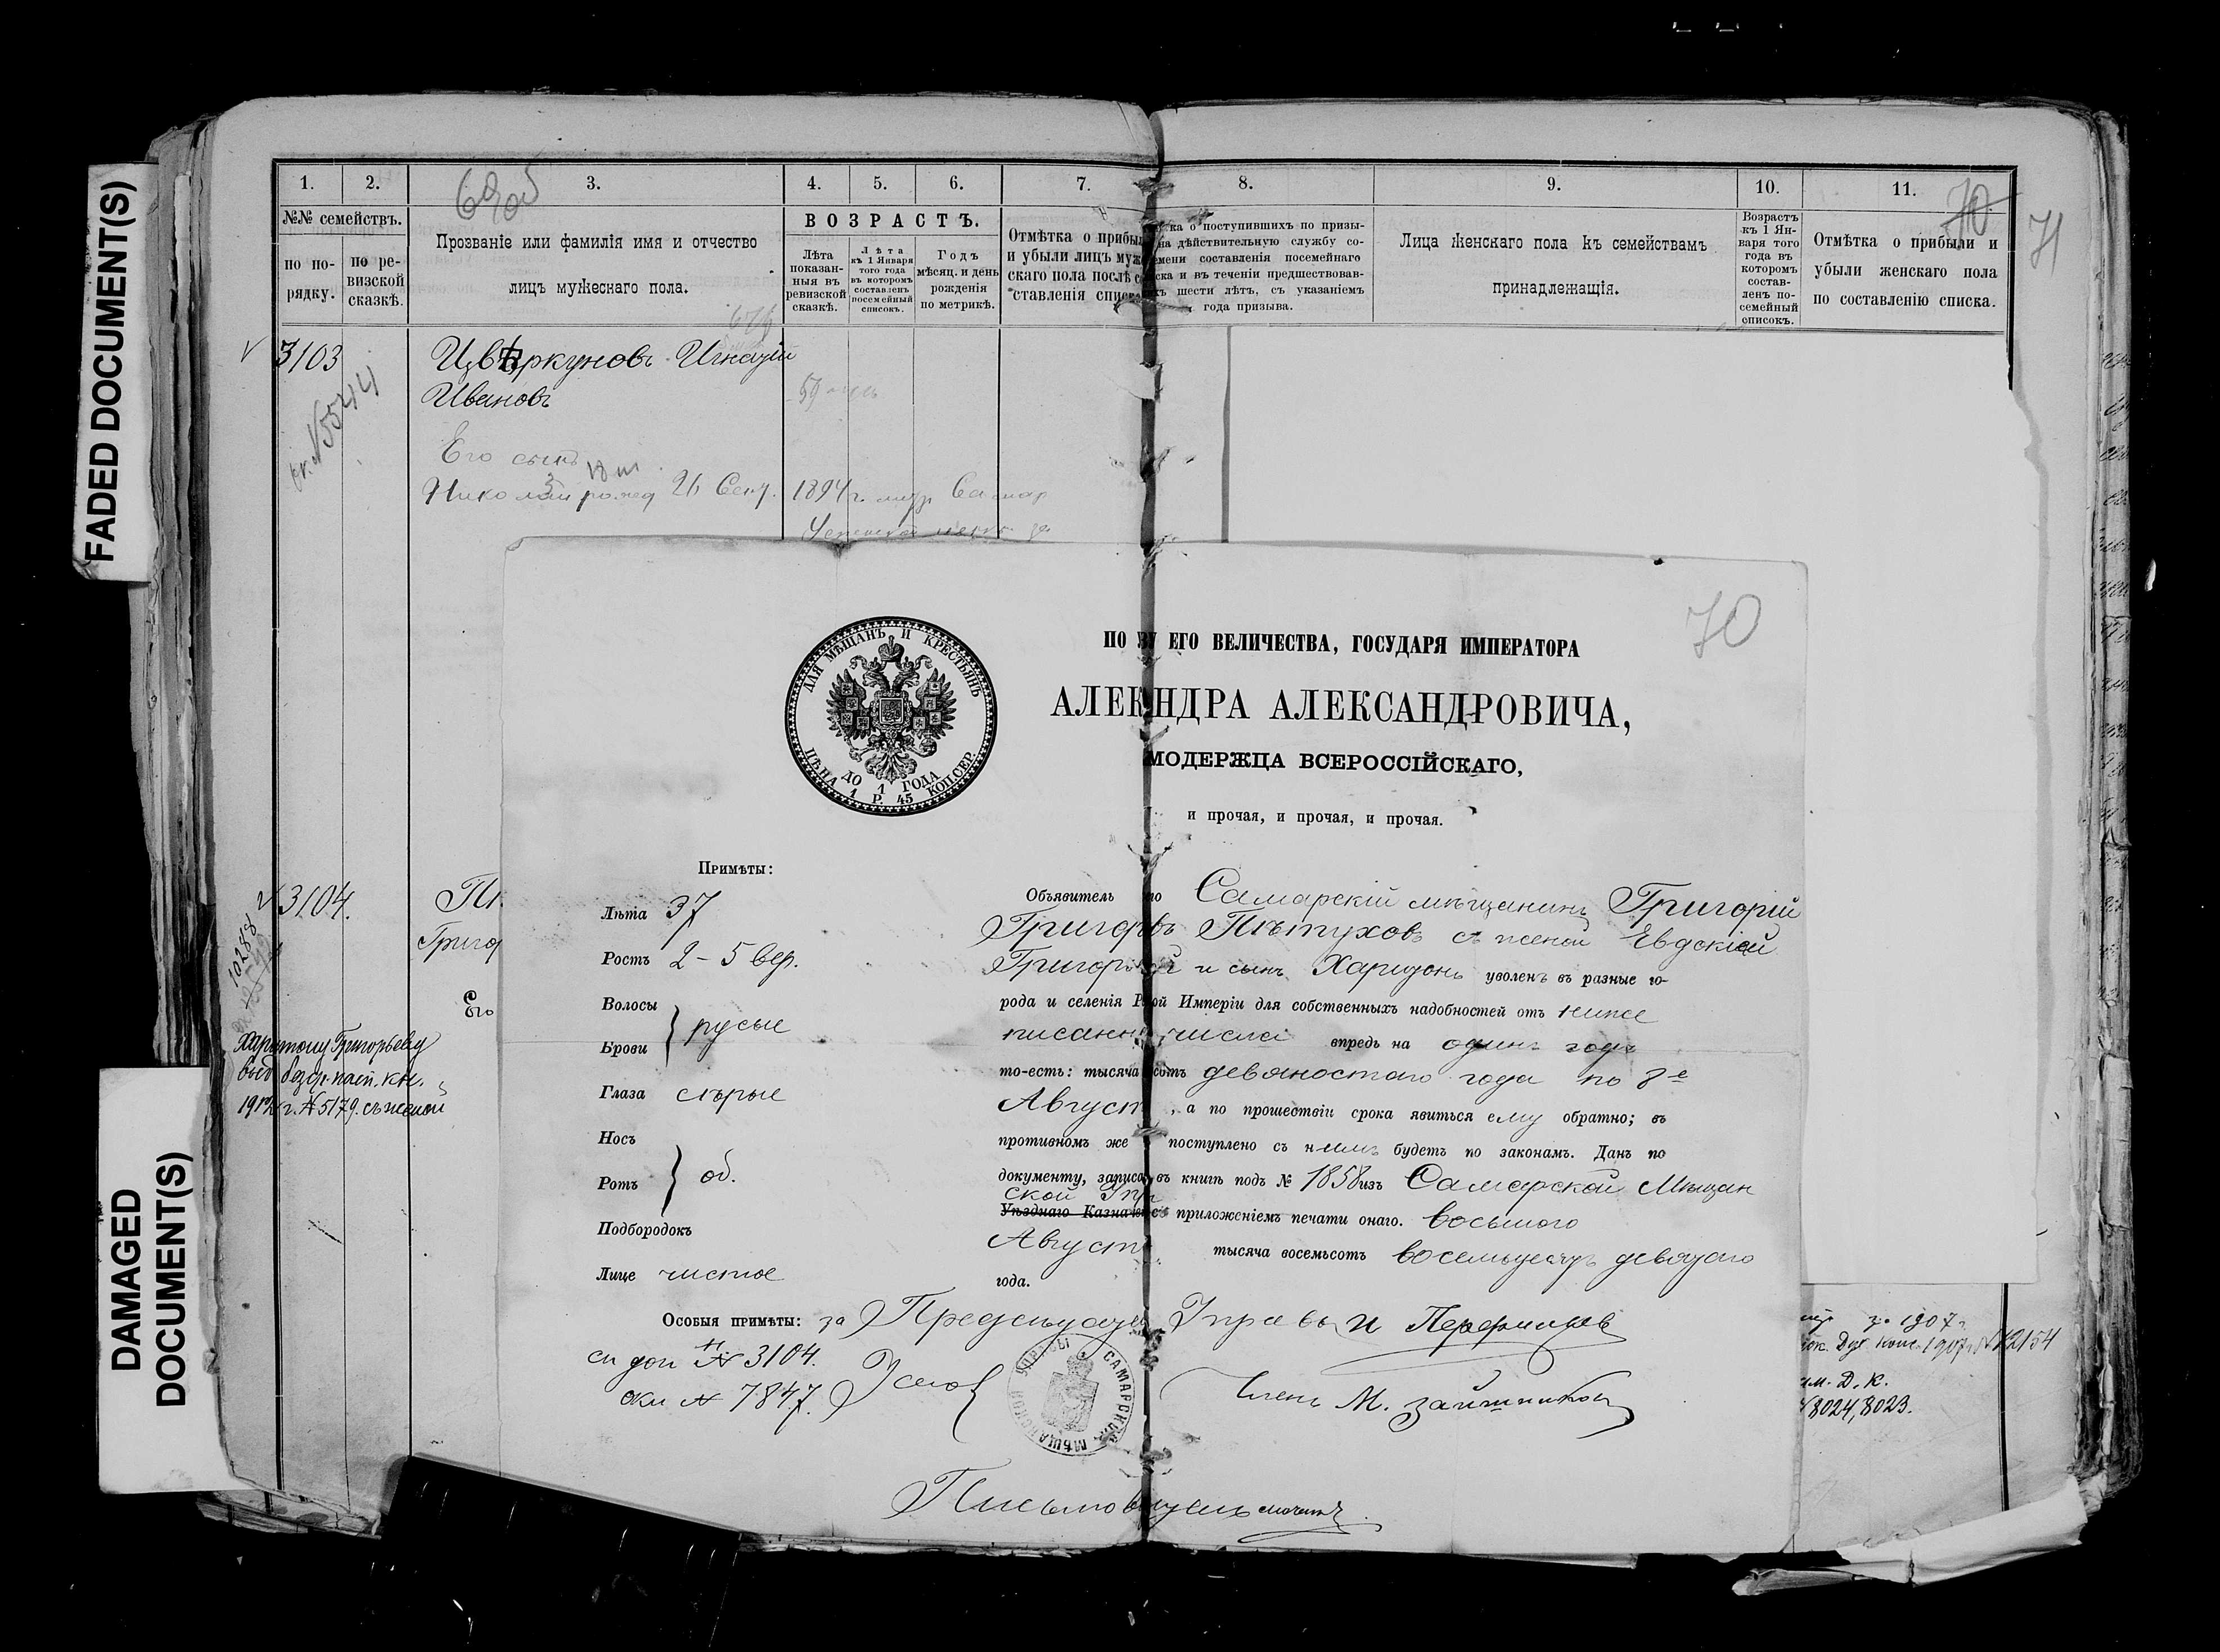 FADED DOCUMENT(S)
DAMAGED
DOCUMENT(S)
1. 2. 3. 4. 5. 6. 7. 8. 9. 10. 11.
70
71
№№ семействъ.
по по-
рядку.
по ре-
визской
сказкѣ.
Прозваніе или фамилія имя и отчество
лицъ мужескаго пола.
ВОЗРАСТЪ.
Лѣта
показан-
ныя въ
ревизской
сказкѣ.
Лѣта
къ 1 Января
того года
въ которомъ
составленъ
посемейный
списокъ.
Годъ
мѣсяц. и день
рожденія
по метрикѣ.
Отмѣтка о прибы
и убыли лицъ муж
скаго пола послѣ с
ставленія списка
ка о поступившихъ по призы-
на дѣйствительную службу со-
емени составленія посемейнаго
ска и въ теченіи предшествовав-
хъ шести лѣтъ, съ указаніемъ
года призыва.
Лица женскаго пола къ семействамъ
принадлежащія.
Возрастъ
къ 1 Ян-
варя того
года въ
которомъ
состав-
ленъ по-
семейный
списокъ.
Отмѣтка о прибыли и
убыли женскаго пола
по составленію списка.
3103
Цвѣркуновъ Игнатій
Ивановъ
№5544
Его сынъ
Николай рожд 26 Сент. 1894 г.
3104.
Григо
Его
10288
Харитону Григорьеву
№5179. съ женой
70
ДЛЯ МѢЩАНЪ И КРЕСТЬЯНЪ
ДО 1 ГОДА
ЦѢНА 1 Р. 45 КОП.СЕР.
ПО У ЕГО ВЕЛИЧЕСТВА, ГОСУДАРЯ ИМПЕРАТОРА
АЛЕК НДРА АЛЕКСАНДРОВИЧА,
МОДЕРЖЦА ВСЕРОССІЙСКАГО,
и прочая, и прочая, и прочая.
Примѣты:
Лѣта 37
Ростъ 2 - 5 вер.
Волосы
Брови
русые
Глаза сѣрые
Носъ
Ротъ
об.
Подбородокъ
Лице чистое
Особыя примѣты:
№ 3104.
№ 7847.
Объявитель го Самарскій мѣщанинъ Григорій
Григорьевъ Пѣтуховъ съ женой Евдокіей
Григорьевой и сынъ Харитонъ уволенъ въ разные го-
рода и селенія Р ой Имперіи для собственныхъ надобностей отъ ниже
писанн числа впредь на одинъ годъ
то-есть: тысяча сотъ девяностаго года по 8е
Август , а по прошествіи срока явиться ему обратно; въ
противномъ же поступлено съ нимъ будетъ по законамъ. Данъ по
документу, записа въ книгѣ подъ № 1858 изъ Самарской Мѣщан
ской Упр
Уѣзднаго Казначе съ приложеніемъ печати онаго. восьмого
Август тысяча восемьсотъ восемьдесятъ девятаго
года.
за Предсѣдателя Управы
Членъ М.
САМАРСКОЙ МѢЩАНСКОЙ УПРАВЫ
Письмоводитель
1907 г.
1907 г. №12154
Д. К.
8024, 8023.